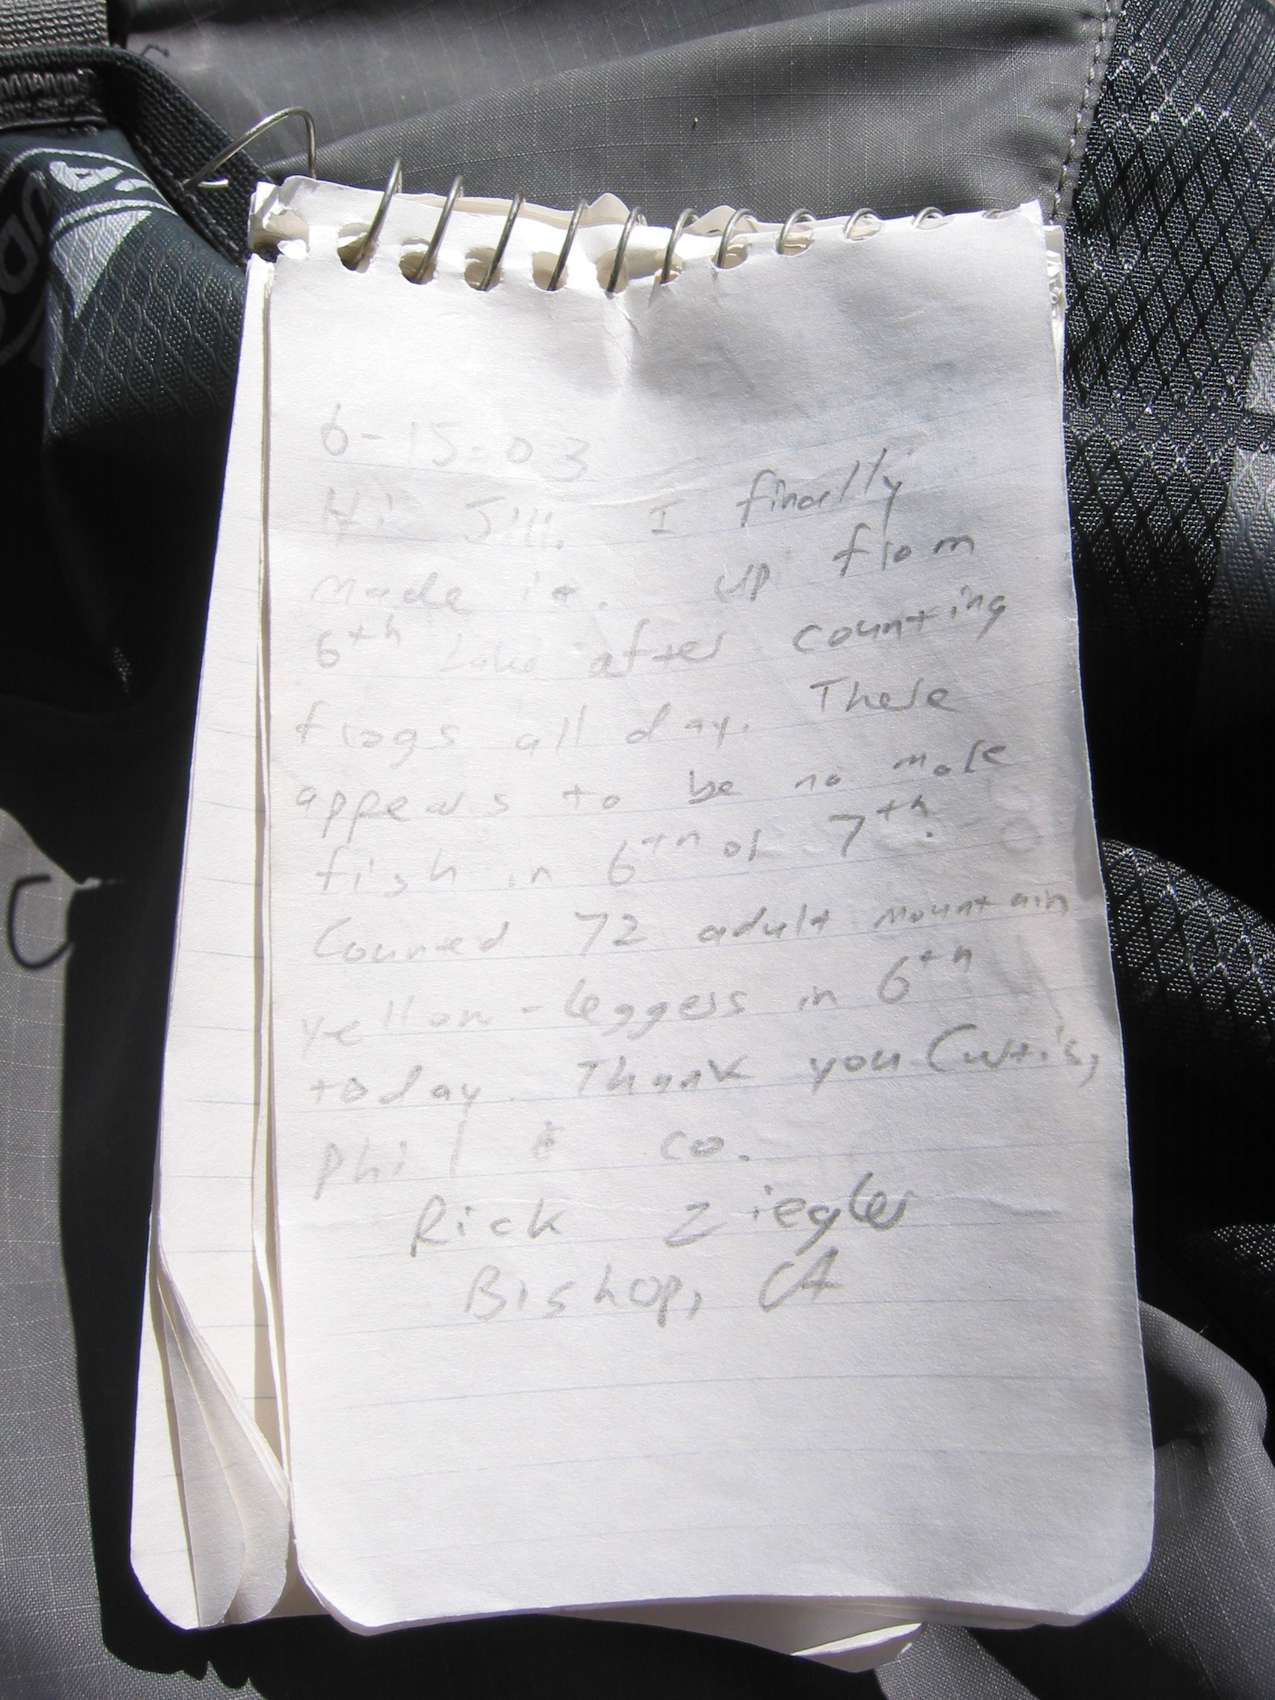 6-15-03
Hi Jill. I finally
made it. up from
6th Lake after counting
frogs all day. There
appears to be no more
fish in 6th or 7th.
Counted 72 adult mountain
yellow-leggers in 6th
today. Thank you Curtis,
Phil & co.
Rick Ziegler
Bishop, CA